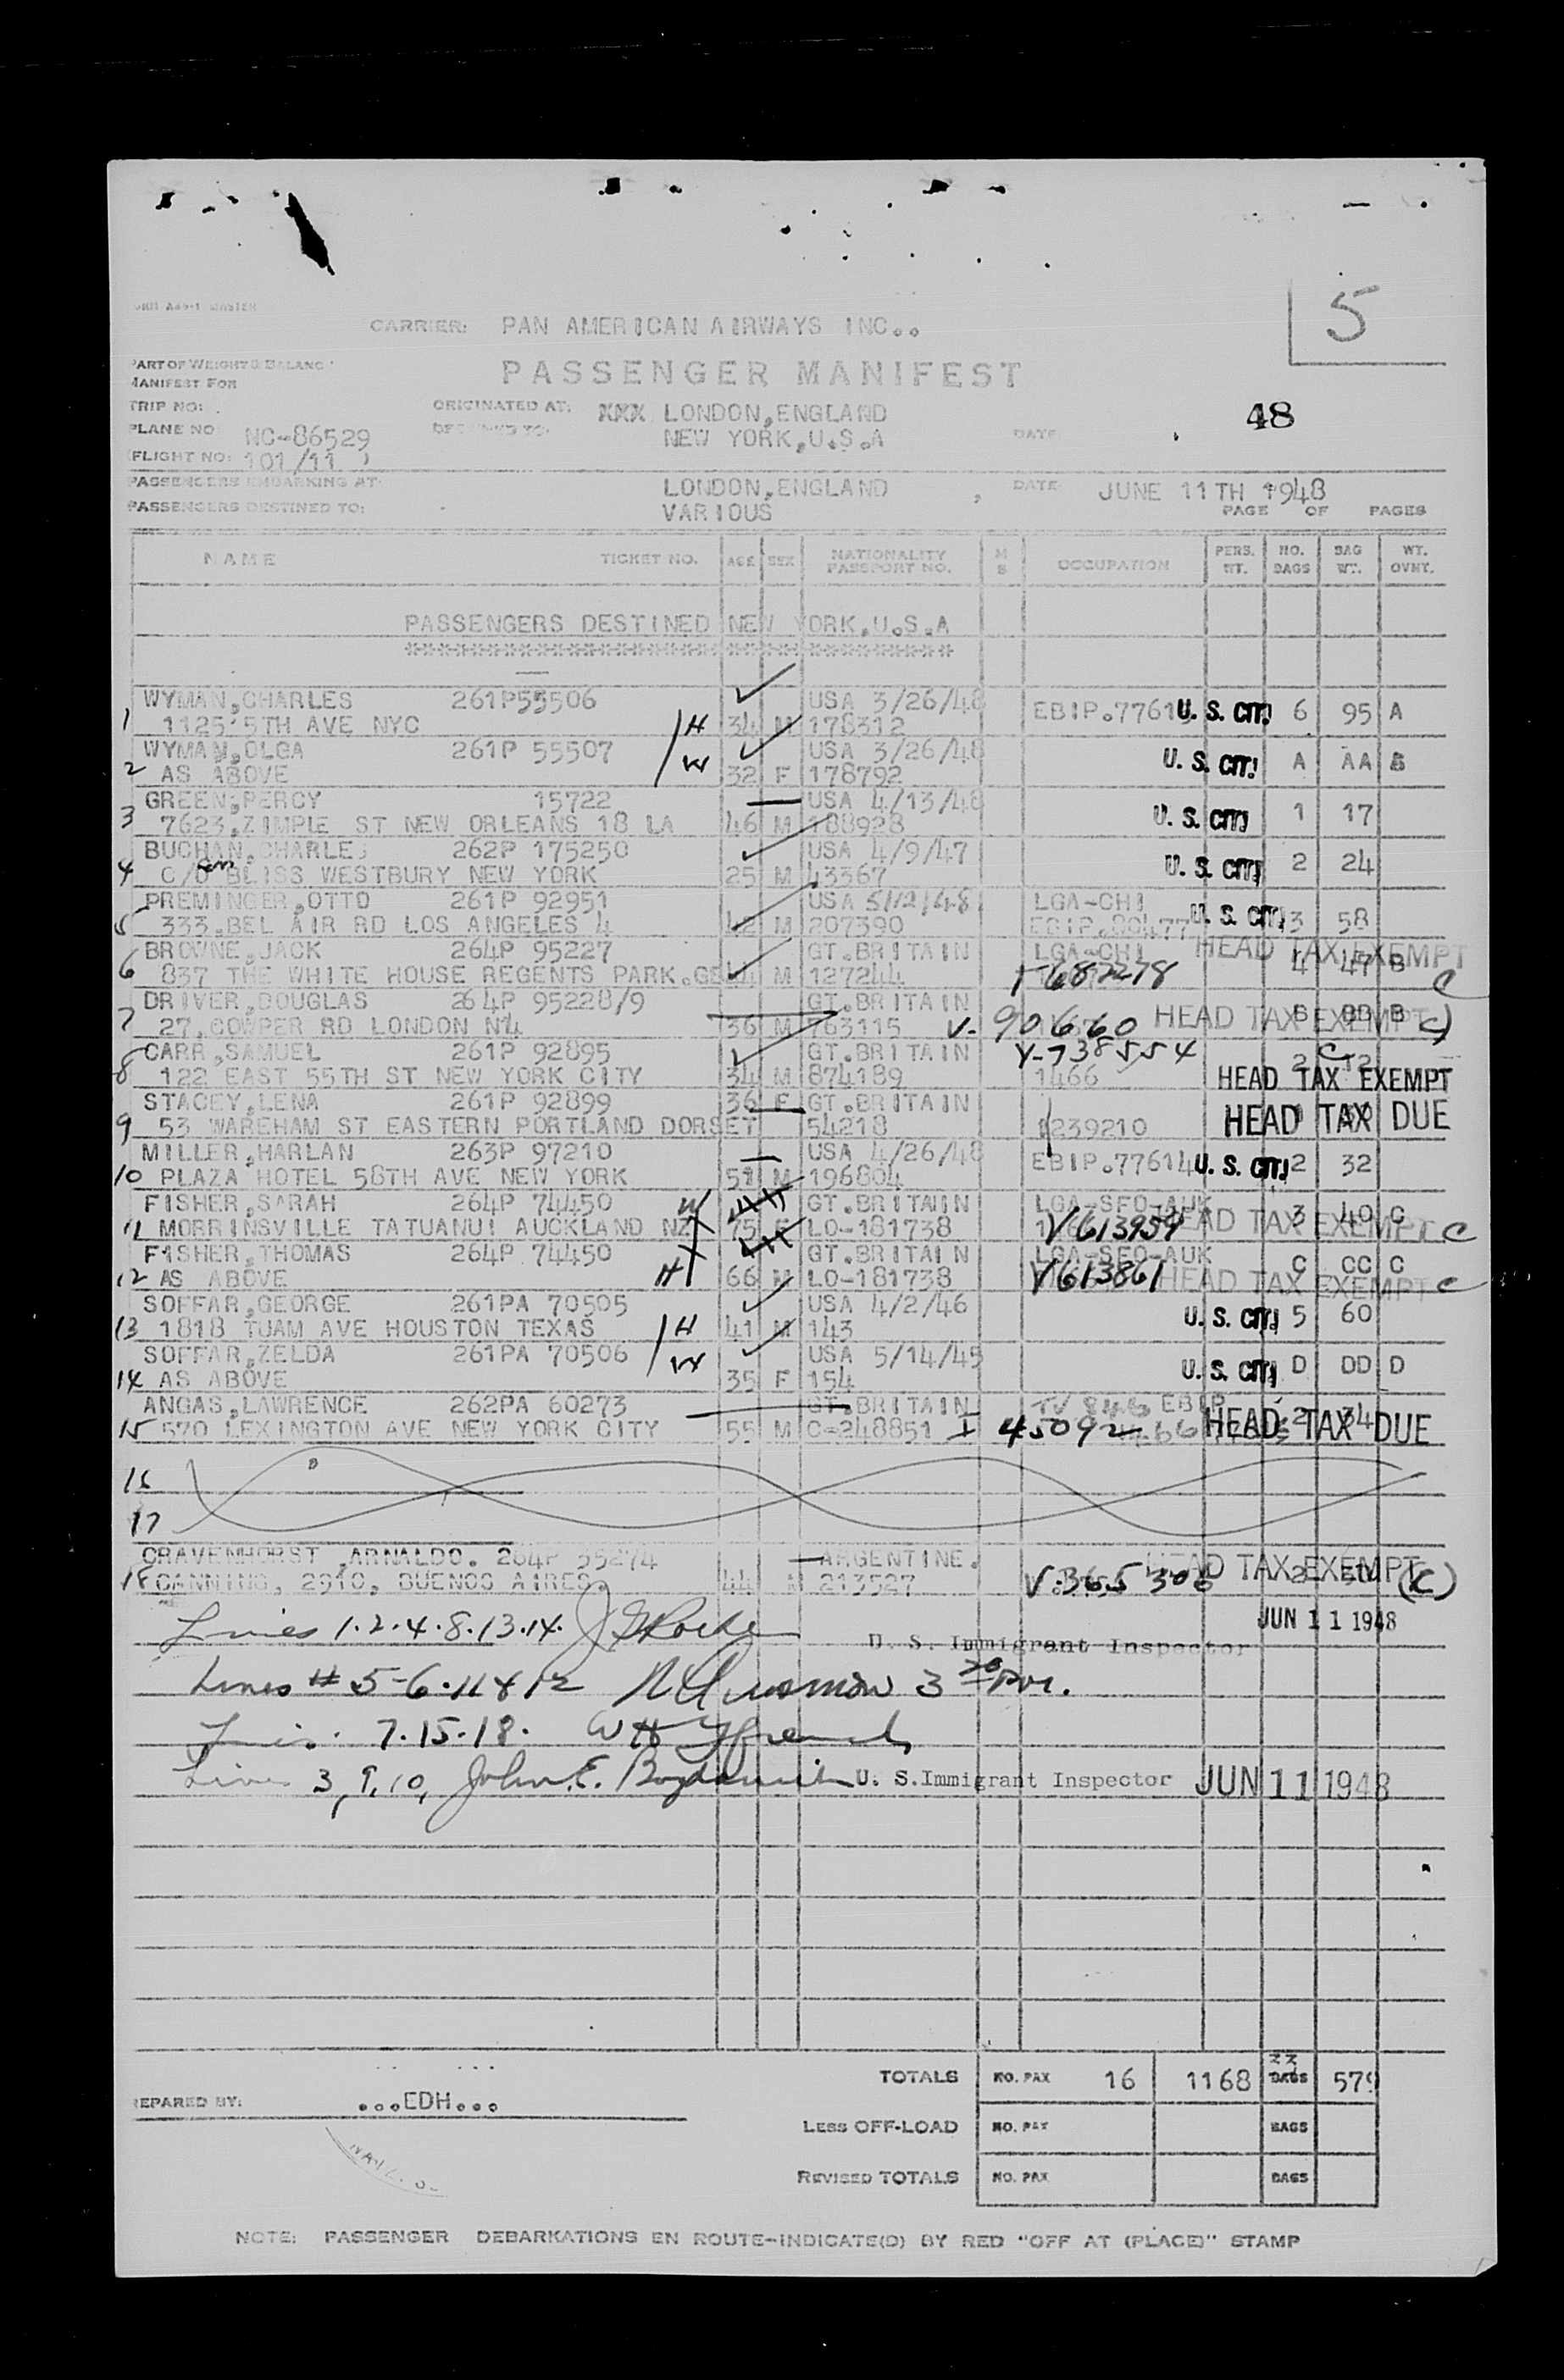 5
CARRIER: PAN AMERICAN AIRWAYS INC..
PART OF WEIGHT & BALANC
MANIFEST FOR
PASSENGER MANIFEST
TRIP NO: ORIGINATED AT: XXX LONDON,ENGLAND 48
PLANE NO NC-86529 NEW YORK,U.S.A DATE
FLIGHT NO: 101/11
PASSENGERS EMBARKING AT: LONDON,ENGLAND DATE JUNE 11TH 1948
PASSENGERS DESTINED TO: VARIOUS PAGE OF PAGES
NAME TICKET NO. AGE SEX NATIONALITY PASSPORT NO. M S OCCUPATION PERS. WT. NO. BAGS BAG WT. WT. OVNT.
PASSENGERS DESTINED NEW YORK,U.S.A
WYMAN,CHARLES 261P55506 USA 3/26/48
1 1125 5TH AVE NYC H 34 M 178312 EBIP.7761 U. S. CIT. 6 95 A
WYMAN,OLGA 261P 55507 USA 3/26/48
2 AS ABOVE W 32 F 178792 U. S. CIT. A AA
GREEN,PERCY 15722 USA 4/13/48
3 7623,ZIMPLE ST NEW ORLEANS 18 LA 46 M 188928 U. S. CIT. 1 17
BUCHAN,CHARLES 262P 175250 USA 4/9/47
4 C/O BLISS WESTBURY NEW YORK 25 M 43367 U. S. CIT. 2 24
PREMINGER,OTTO 261P 92951 USA 5/12/48 LGA-CHI
5 333.BEL AIR RD LOS ANGELES 4 42 M 207390 EBIP.80477 U. S. CIT. 3 58
BROWNE,JACK 264P 95227 GT.BRITAIN LGA-CHI HEAD TAX EXEMPT
6 837 THE WHITE HOUSE REGENTS PARK.GB M 127244 682278 4 47 B C
DRIVER,DOUGLAS 264P 95228/9 GT.BRITAIN
7 27,COWPER RD LONDON N14 36 M 763115 V-90660 HEAD TAX EXEMPT B BB B C
CARR,SAMUEL 261P 92895 GT.BRITAIN V-738554 C
8 122 EAST 55TH ST NEW YORK CITY 34 M 874189 1466 HEAD TAX EXEMPT 2
STACEY,LENA 261P 92899 36 F GT.BRITAIN
9 53 WAREHAM ST EASTERN PORTLAND DORSET 54218 1239210 HEAD TAX DUE
MILLER,HARLAN 263P 97210 USA 4/26/48
10 PLAZA HOTEL 58TH AVE NEW YORK 51 M 196804 EBIP.77614 U. S. CIT. 2 32
FISHER,SARAH 264P 74450 W GT.BRITAIN LGA-SFO-AUK
11 MORRINSVILLE TATUANUI AUCKLAND NZ 75 F LO-181738 V613959 HEAD TAX EXEMPT 3 40 C C
FISHER,THOMAS 264P 74450 GT.BRITAIN LGA-SFO-AUK
12 AS ABOVE H 66 M LO-181738 V613861 HEAD TAX EXEMPT C CC C C
SOFFAR,GEORGE 261PA 70505 USA 4/2/46
13 1818 TUAM AVE HOUSTON TEXAS H 41 M 143 U. S. CIT. 5 60
SOFFAR,ZELDA 261PA 70506 USA 5/14/45
14 AS ABOVE W 35 F 154 U. S. CIT. D DD D
ANGAS,LAWRENCE 262PA 60273 GT.BRITAIN EBIP
15 570 LEXINGTON AVE NEW YORK CITY 55 M C-248851 I 45092 HEAD TAX DUE 2 34
16
17
GRAVENHORST ,ARNALDO. 264P 55274 ARGENTINE.
18 CANNING, 2910, BUENOS AIRES. 44 M 213527 V.365306 HEAD TAX EXEMPT 2 (C)
Lines 1.2.4.8.13.14. U. S. Immigrant Inspector JUN 11 1948
Lines # 5-6-11 & 12
7.15.18.
Lines 3, 9, 10, John E. U. S.Immigrant Inspector JUN 11 1948
TOTALS NO. PAX 16 1168 33 BAGS 579
PREPARED BY: ...EDH...
LESS OFF-LOAD NO. PAX BAGS
REVISED TOTALS NO. PAX BAGS
NOTE: PASSENGER DEBARKATIONS EN ROUTE-INDICATE(D) BY RED "OFF AT (PLACE)" STAMP